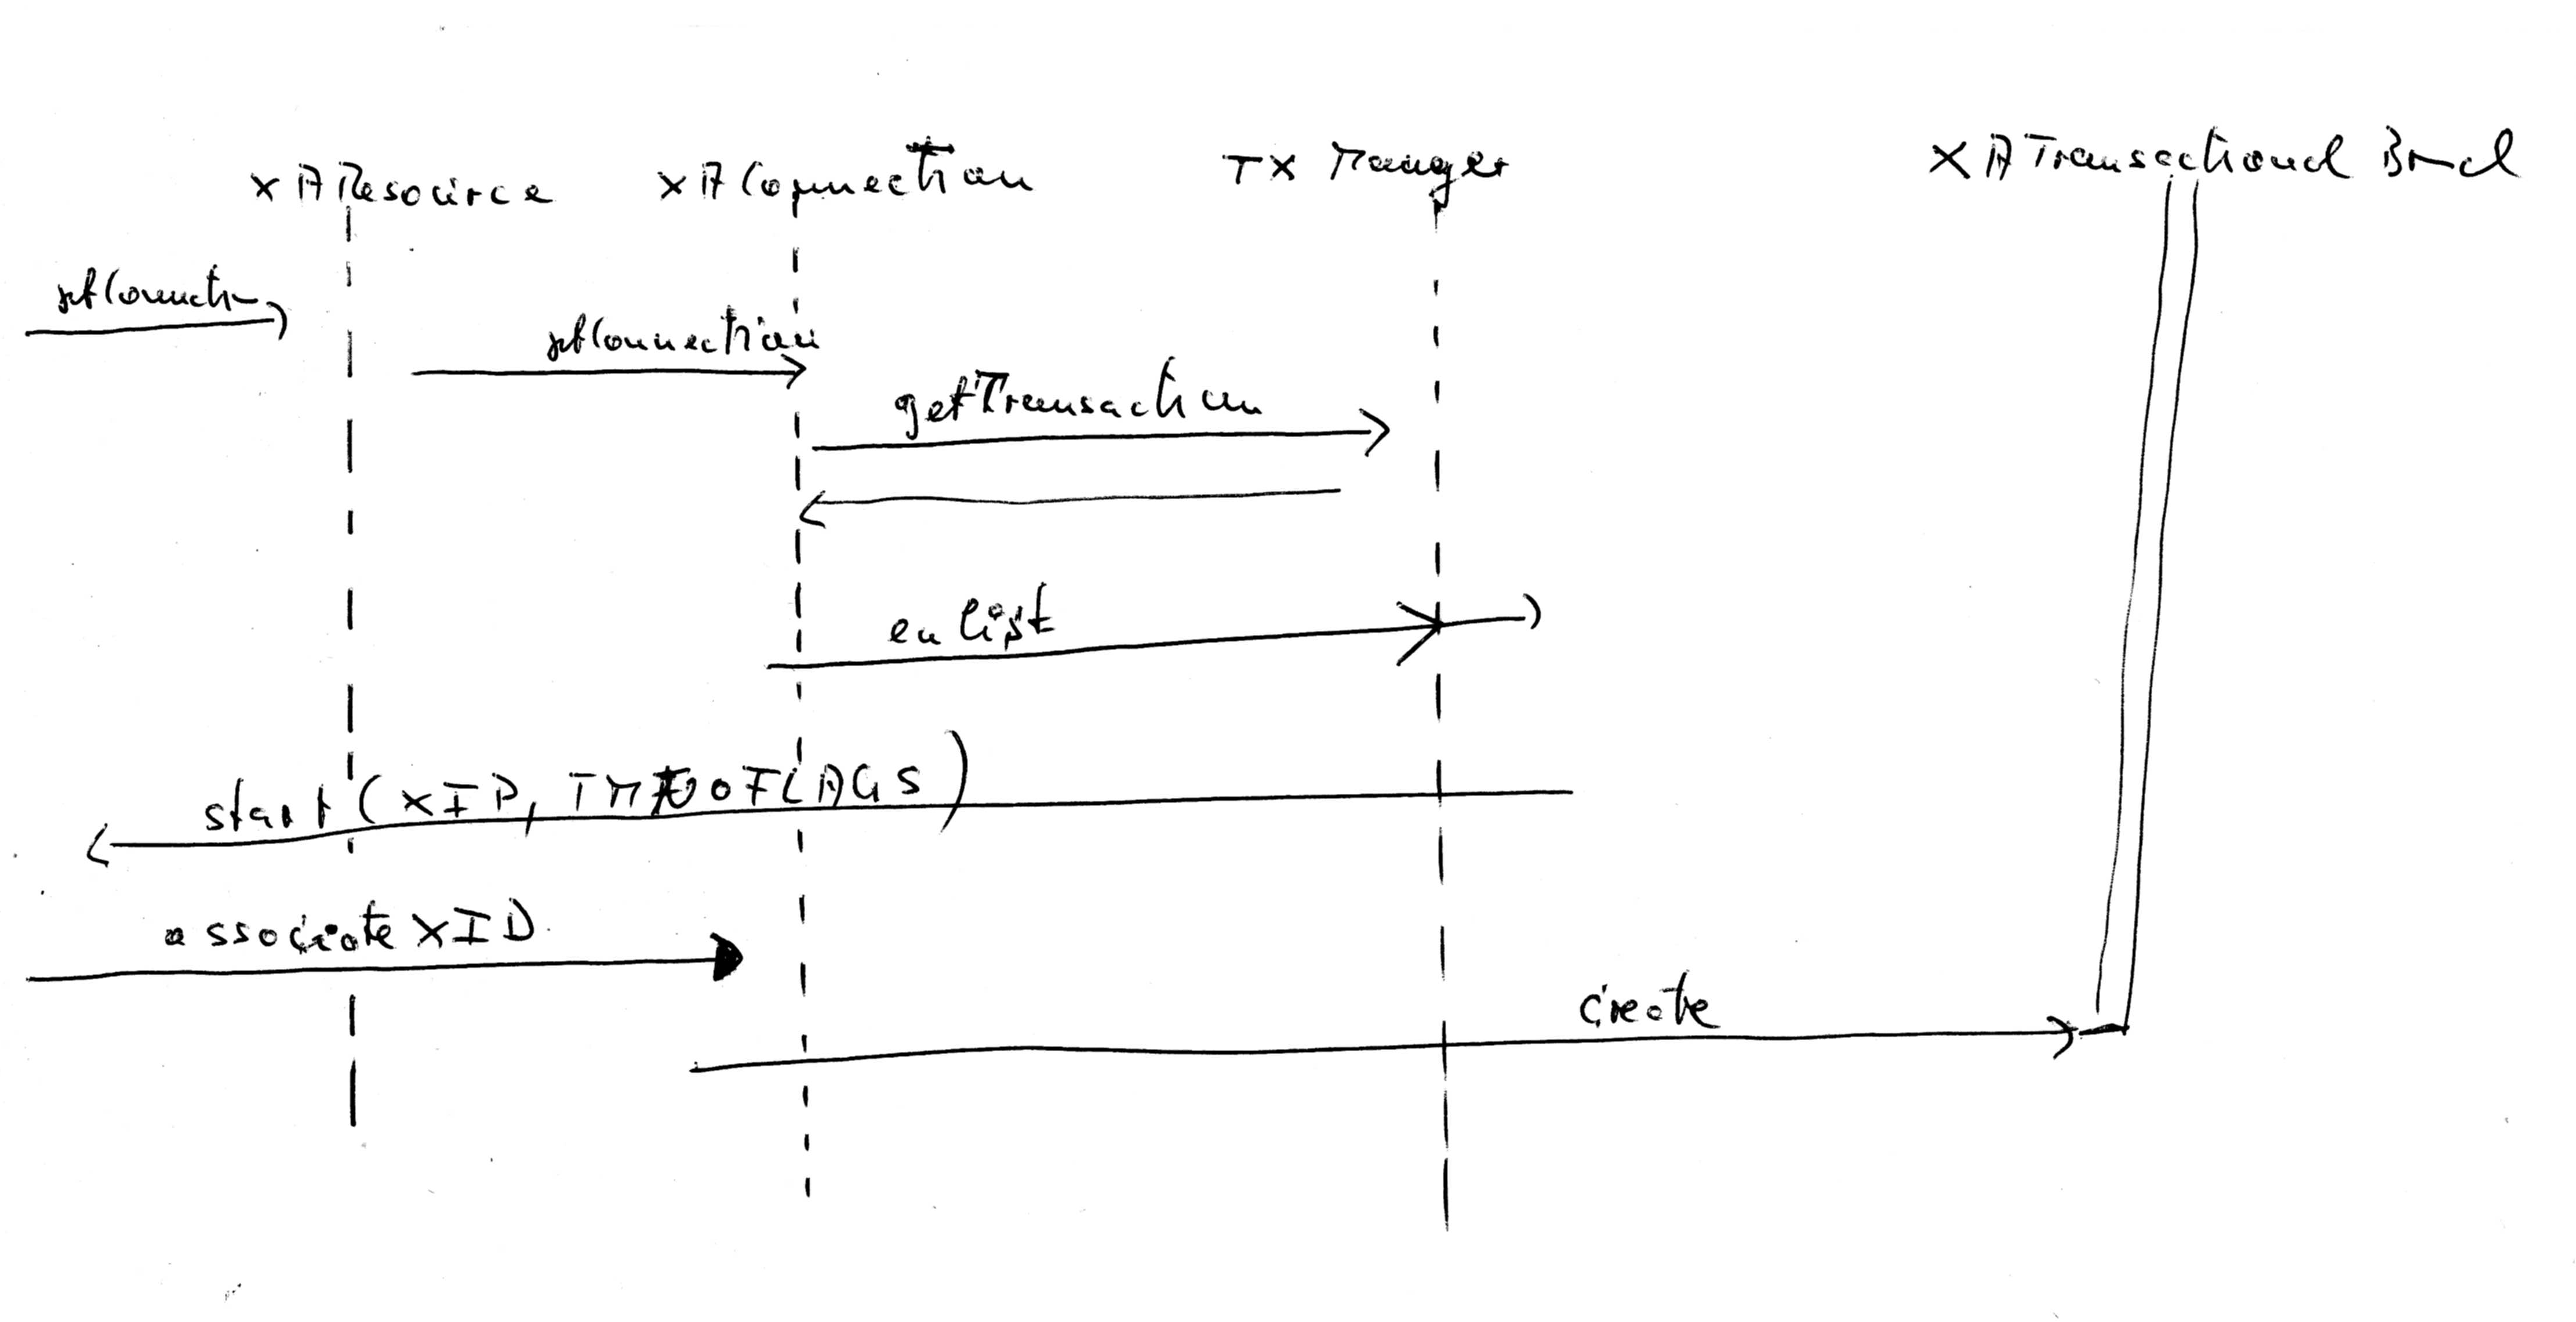 XAResource XAConnection TX Manager XATransactional
setConnection
getTransaction
enlist
start (XID, TMNOFLAGS)
associate XID
create